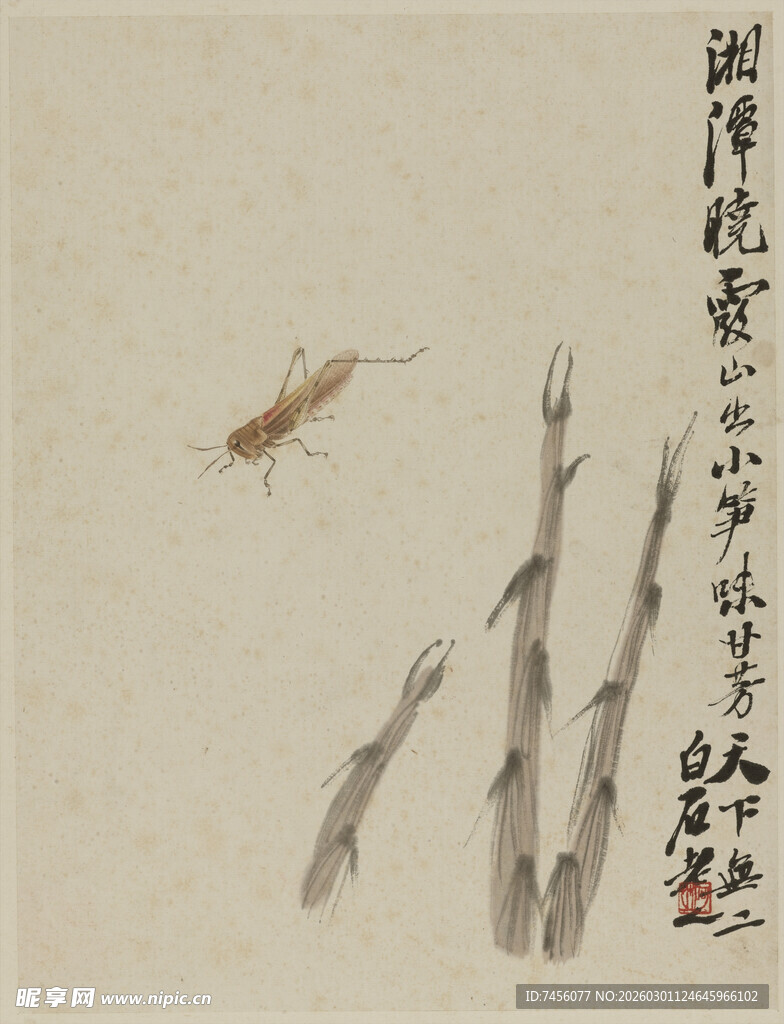 湘潭曉霞山出小笋味甘芳天下無二
白石老人
昵享网 www.nipic.cn
ID:7456077 NO:20260301124645966102